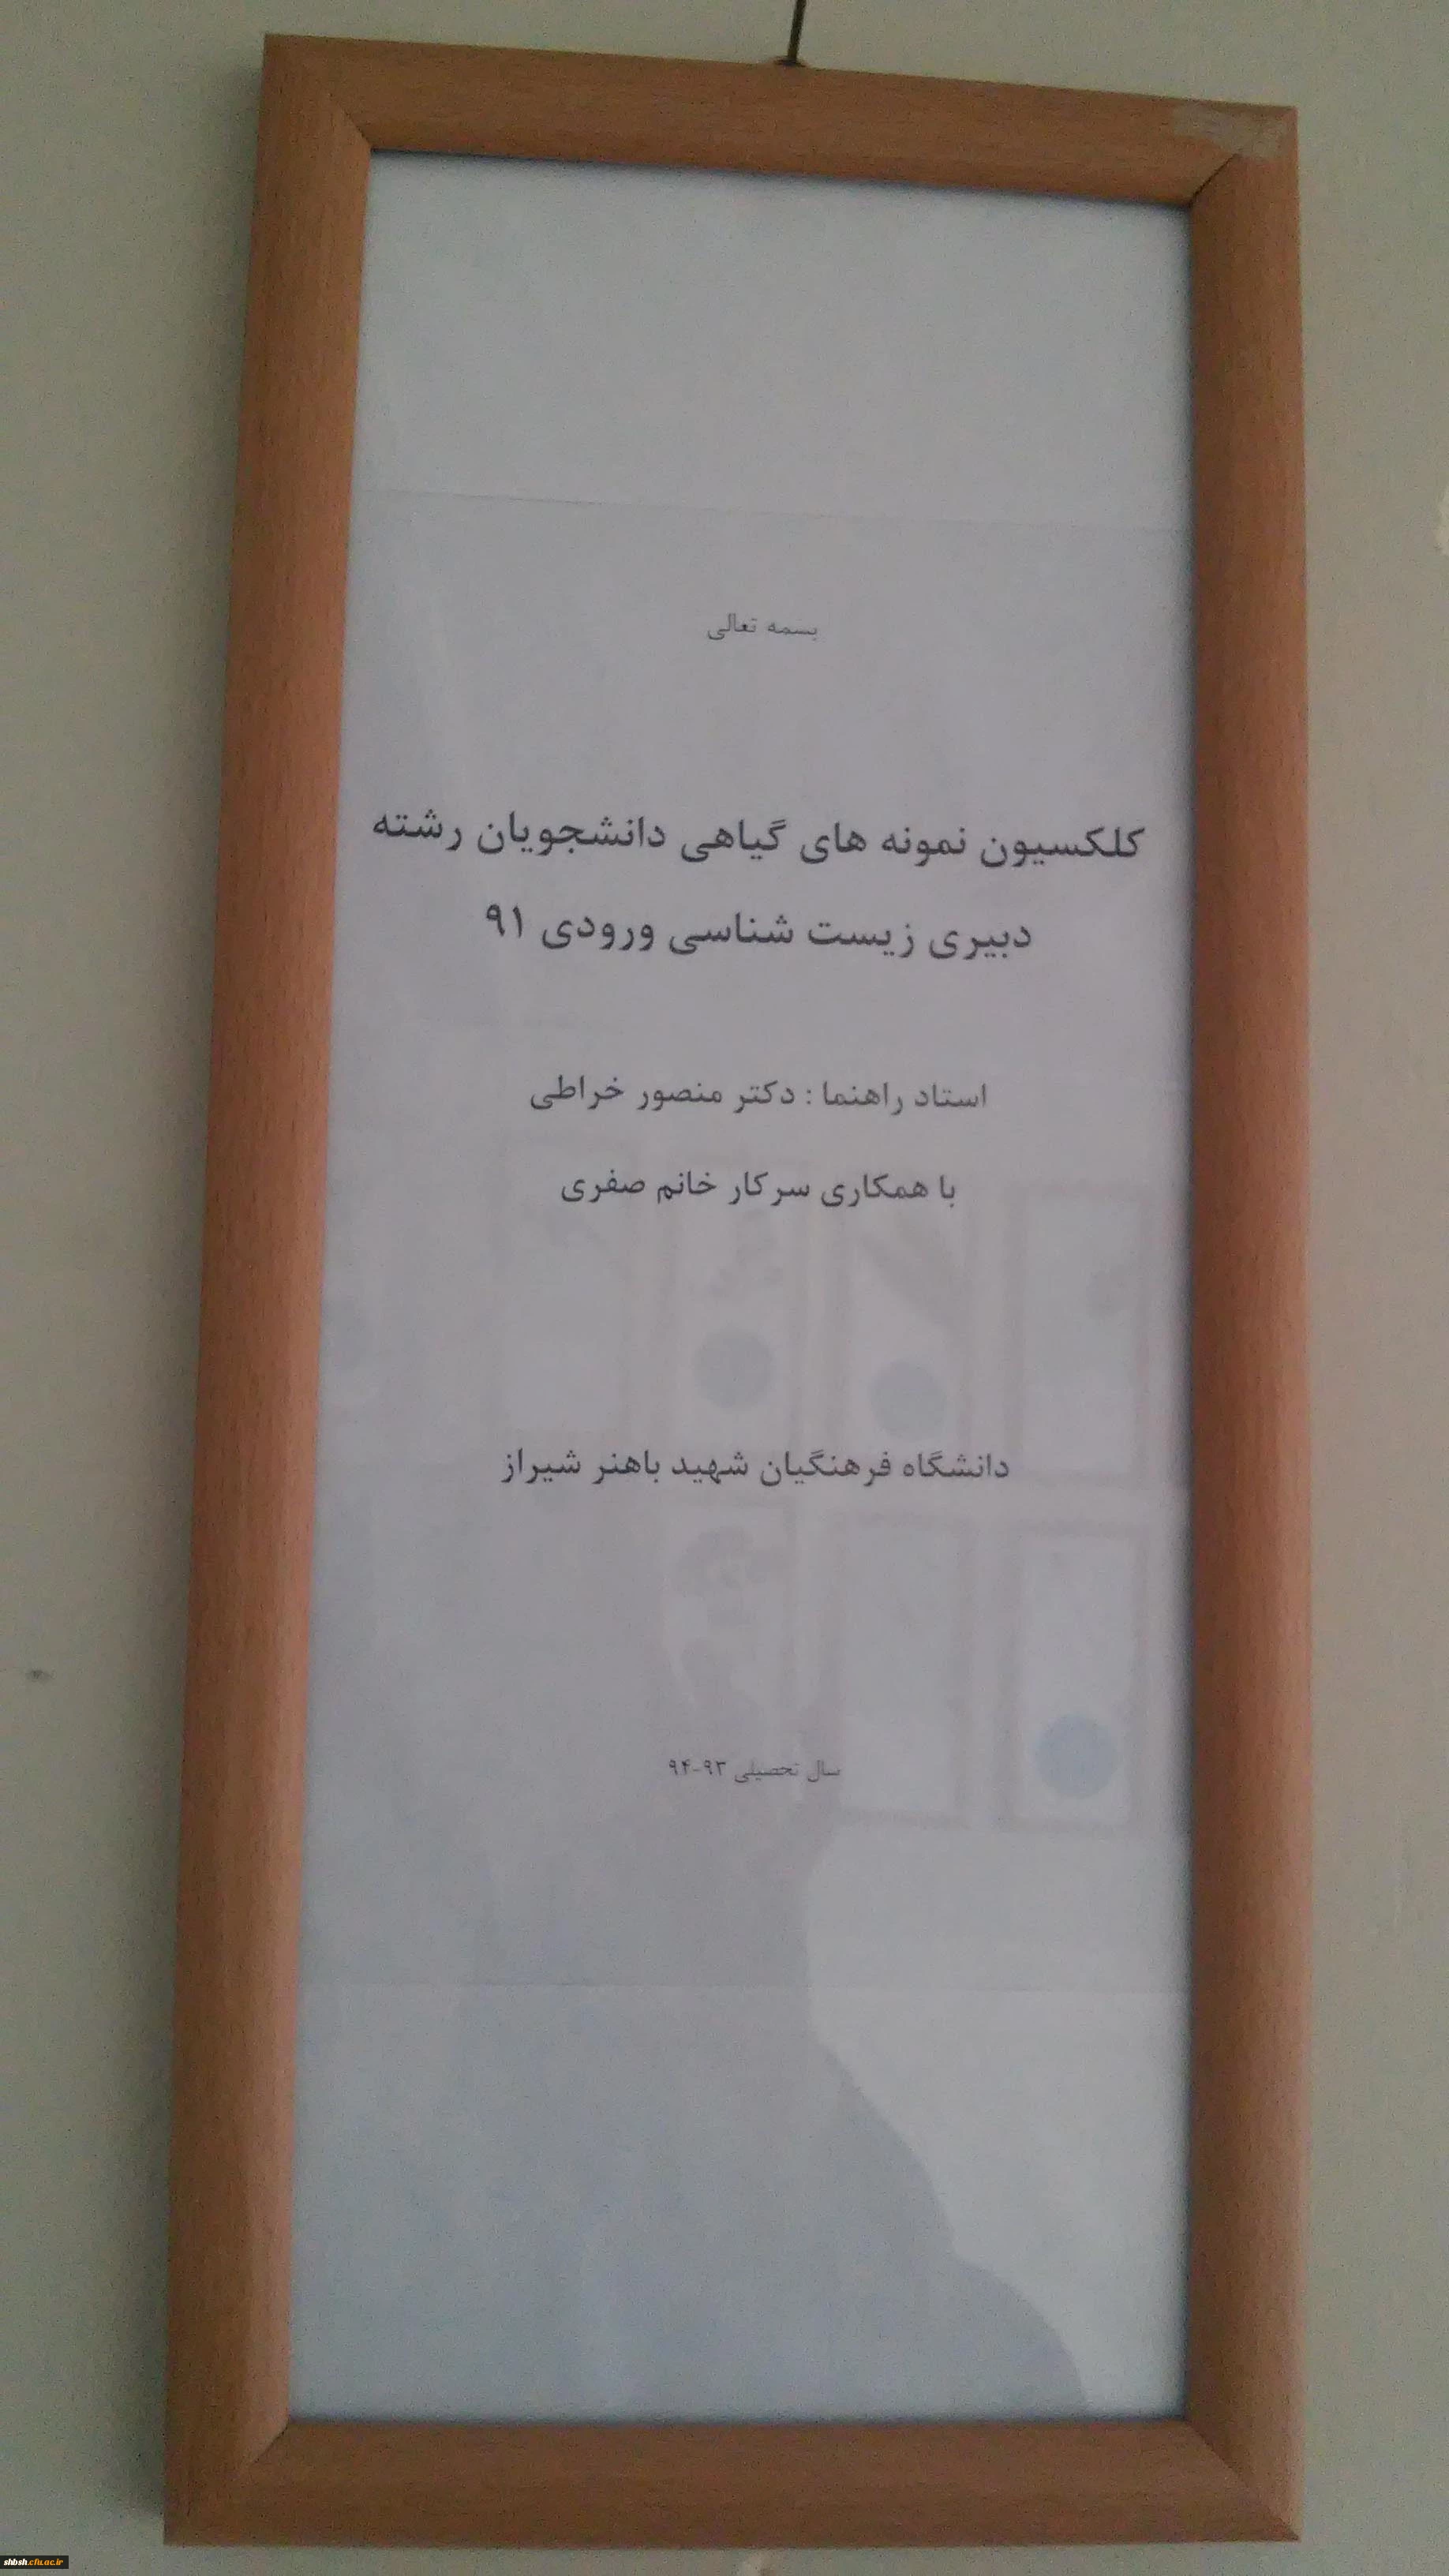 بسمه تعالی
کلکسیون نمونه های گیاهی دانشجویان رشته
دبیری زیست شناسی ورودی ۹۱
استاد راهنما : دکتر منصور خراطی
با همکاری سرکار خانم صفری
دانشگاه فرهنگیان شهید باهنر شیراز
سال تحصیلی ۹۳-۹۴
shbsh.cfu.ac.ir